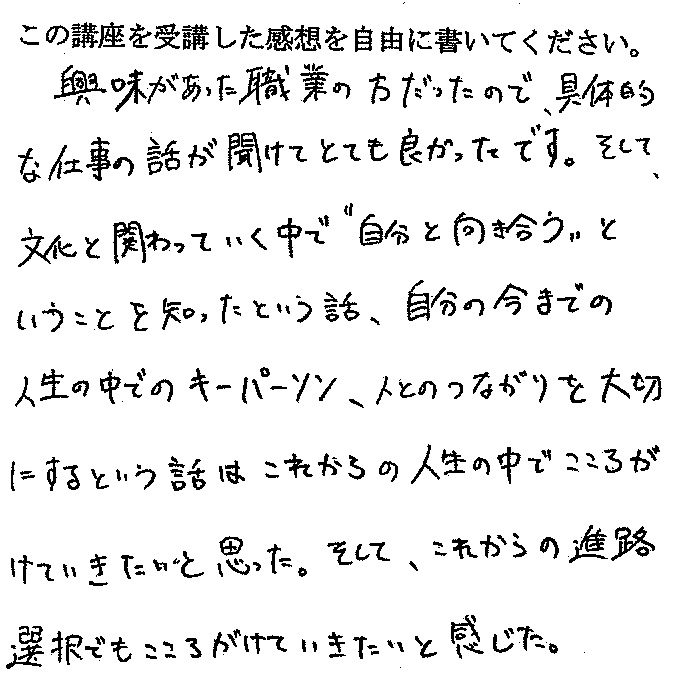 この講座を受講した感想を自由に書いてください。
興味があった職業の方だったので、具体的
な仕事の話が聞けてとても良かったです。そして、
文化と関わっていく中で〝自分と向き合う〟と
いうことを知ったという話、自分の今までの
人生の中でのキーパーソン、人とのつながりを大切
にするという話はこれからの人生の中でこころが
けていきたいと思った。そして、これからの進路
選択でもこころがけていきたいと感じた。